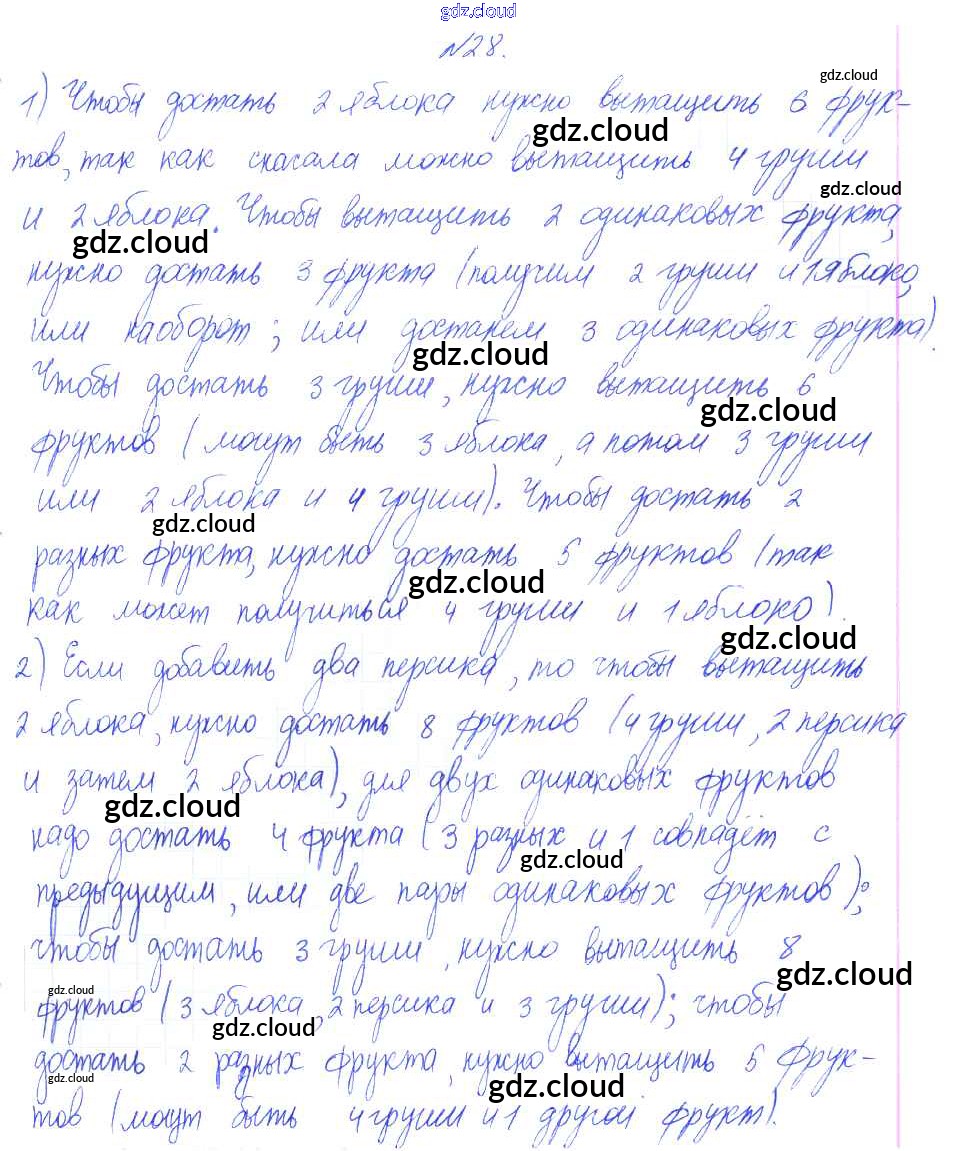 gdz.cloud
№28.
gdz.cloud
1) Чтобы достать 2 яблока нужно вытащить 6 фрук-
gdz.cloud
тов, так как сначала можно вытащить 4 груши
gdz.cloud
и 2 яблока. Чтобы вытащить 2 одинаковых фрукта,
gdz.cloud
нужно достать 3 фрукта (получим 2 груши и 1 яблоко,
или наоборот; или достанем 3 одинаковых фрукта).
gdz.cloud
Чтобы достать 3 груши, нужно вытащить 6
gdz.cloud
фруктов (могут быть 3 яблока, а потом 3 груши
или 2 яблока и 4 груши). Чтобы достать 2
gdz.cloud
разных фрукта, нужно достать 5 фруктов (так
gdz.cloud
как может получиться 4 груши и 1 яблоко).
gdz.cloud
2) Если добавить два персика, то чтобы вытащить
2 яблока, нужно достать 8 фруктов (4 груши, 2 персика
и затем 2 яблока), для двух одинаковых фруктов
gdz.cloud
надо достать 4 фрукта (3 разных и 1 совпадёт с
gdz.cloud
предыдущим, или две пары одинаковых фруктов);
чтобы достать 3 груши, нужно вытащить 8
gdz.cloud
gdz.cloud
фруктов (3 яблока, 2 персика и 3 груши); чтобы
gdz.cloud
достать 2 разных фрукта, нужно вытащить 5 фрук-
gdz.cloud
gdz.cloud
тов (могут быть 4 груши и 1 другой фрукт).